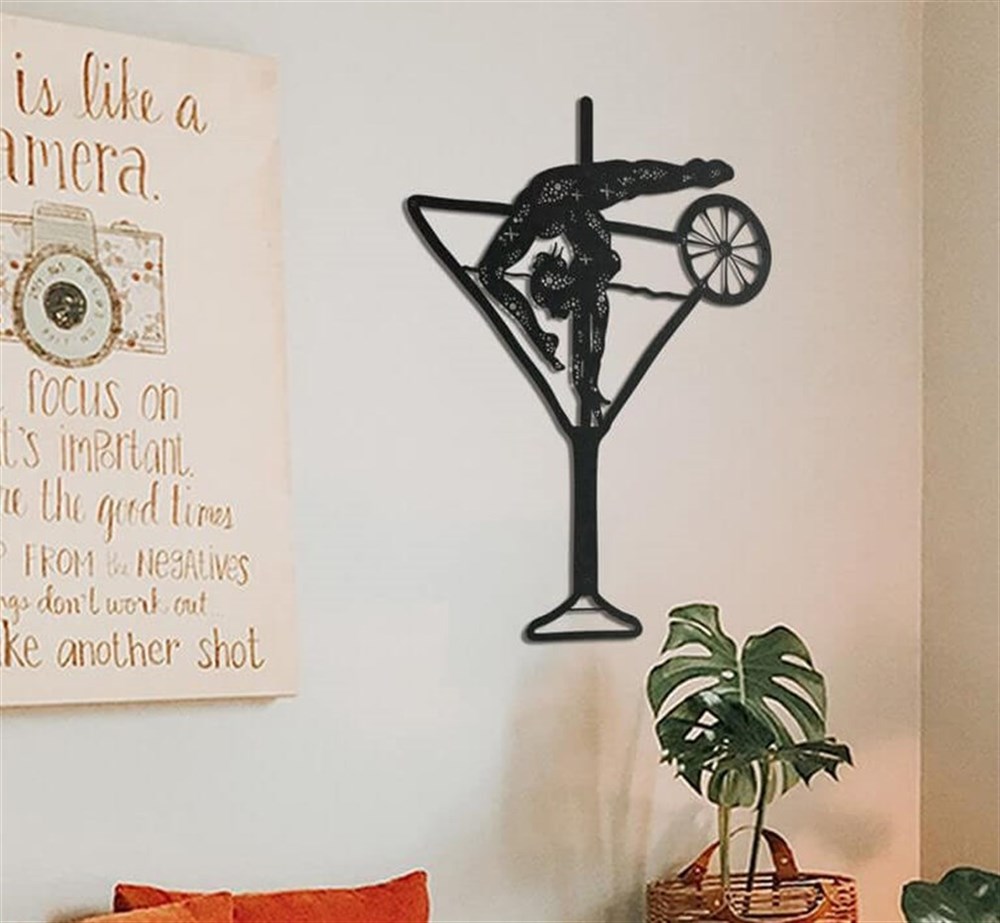 is like a
amera.
focus on
t's important.
re the good times
P FROM the NEGATIVES
ngs don't work out...
ke another shot